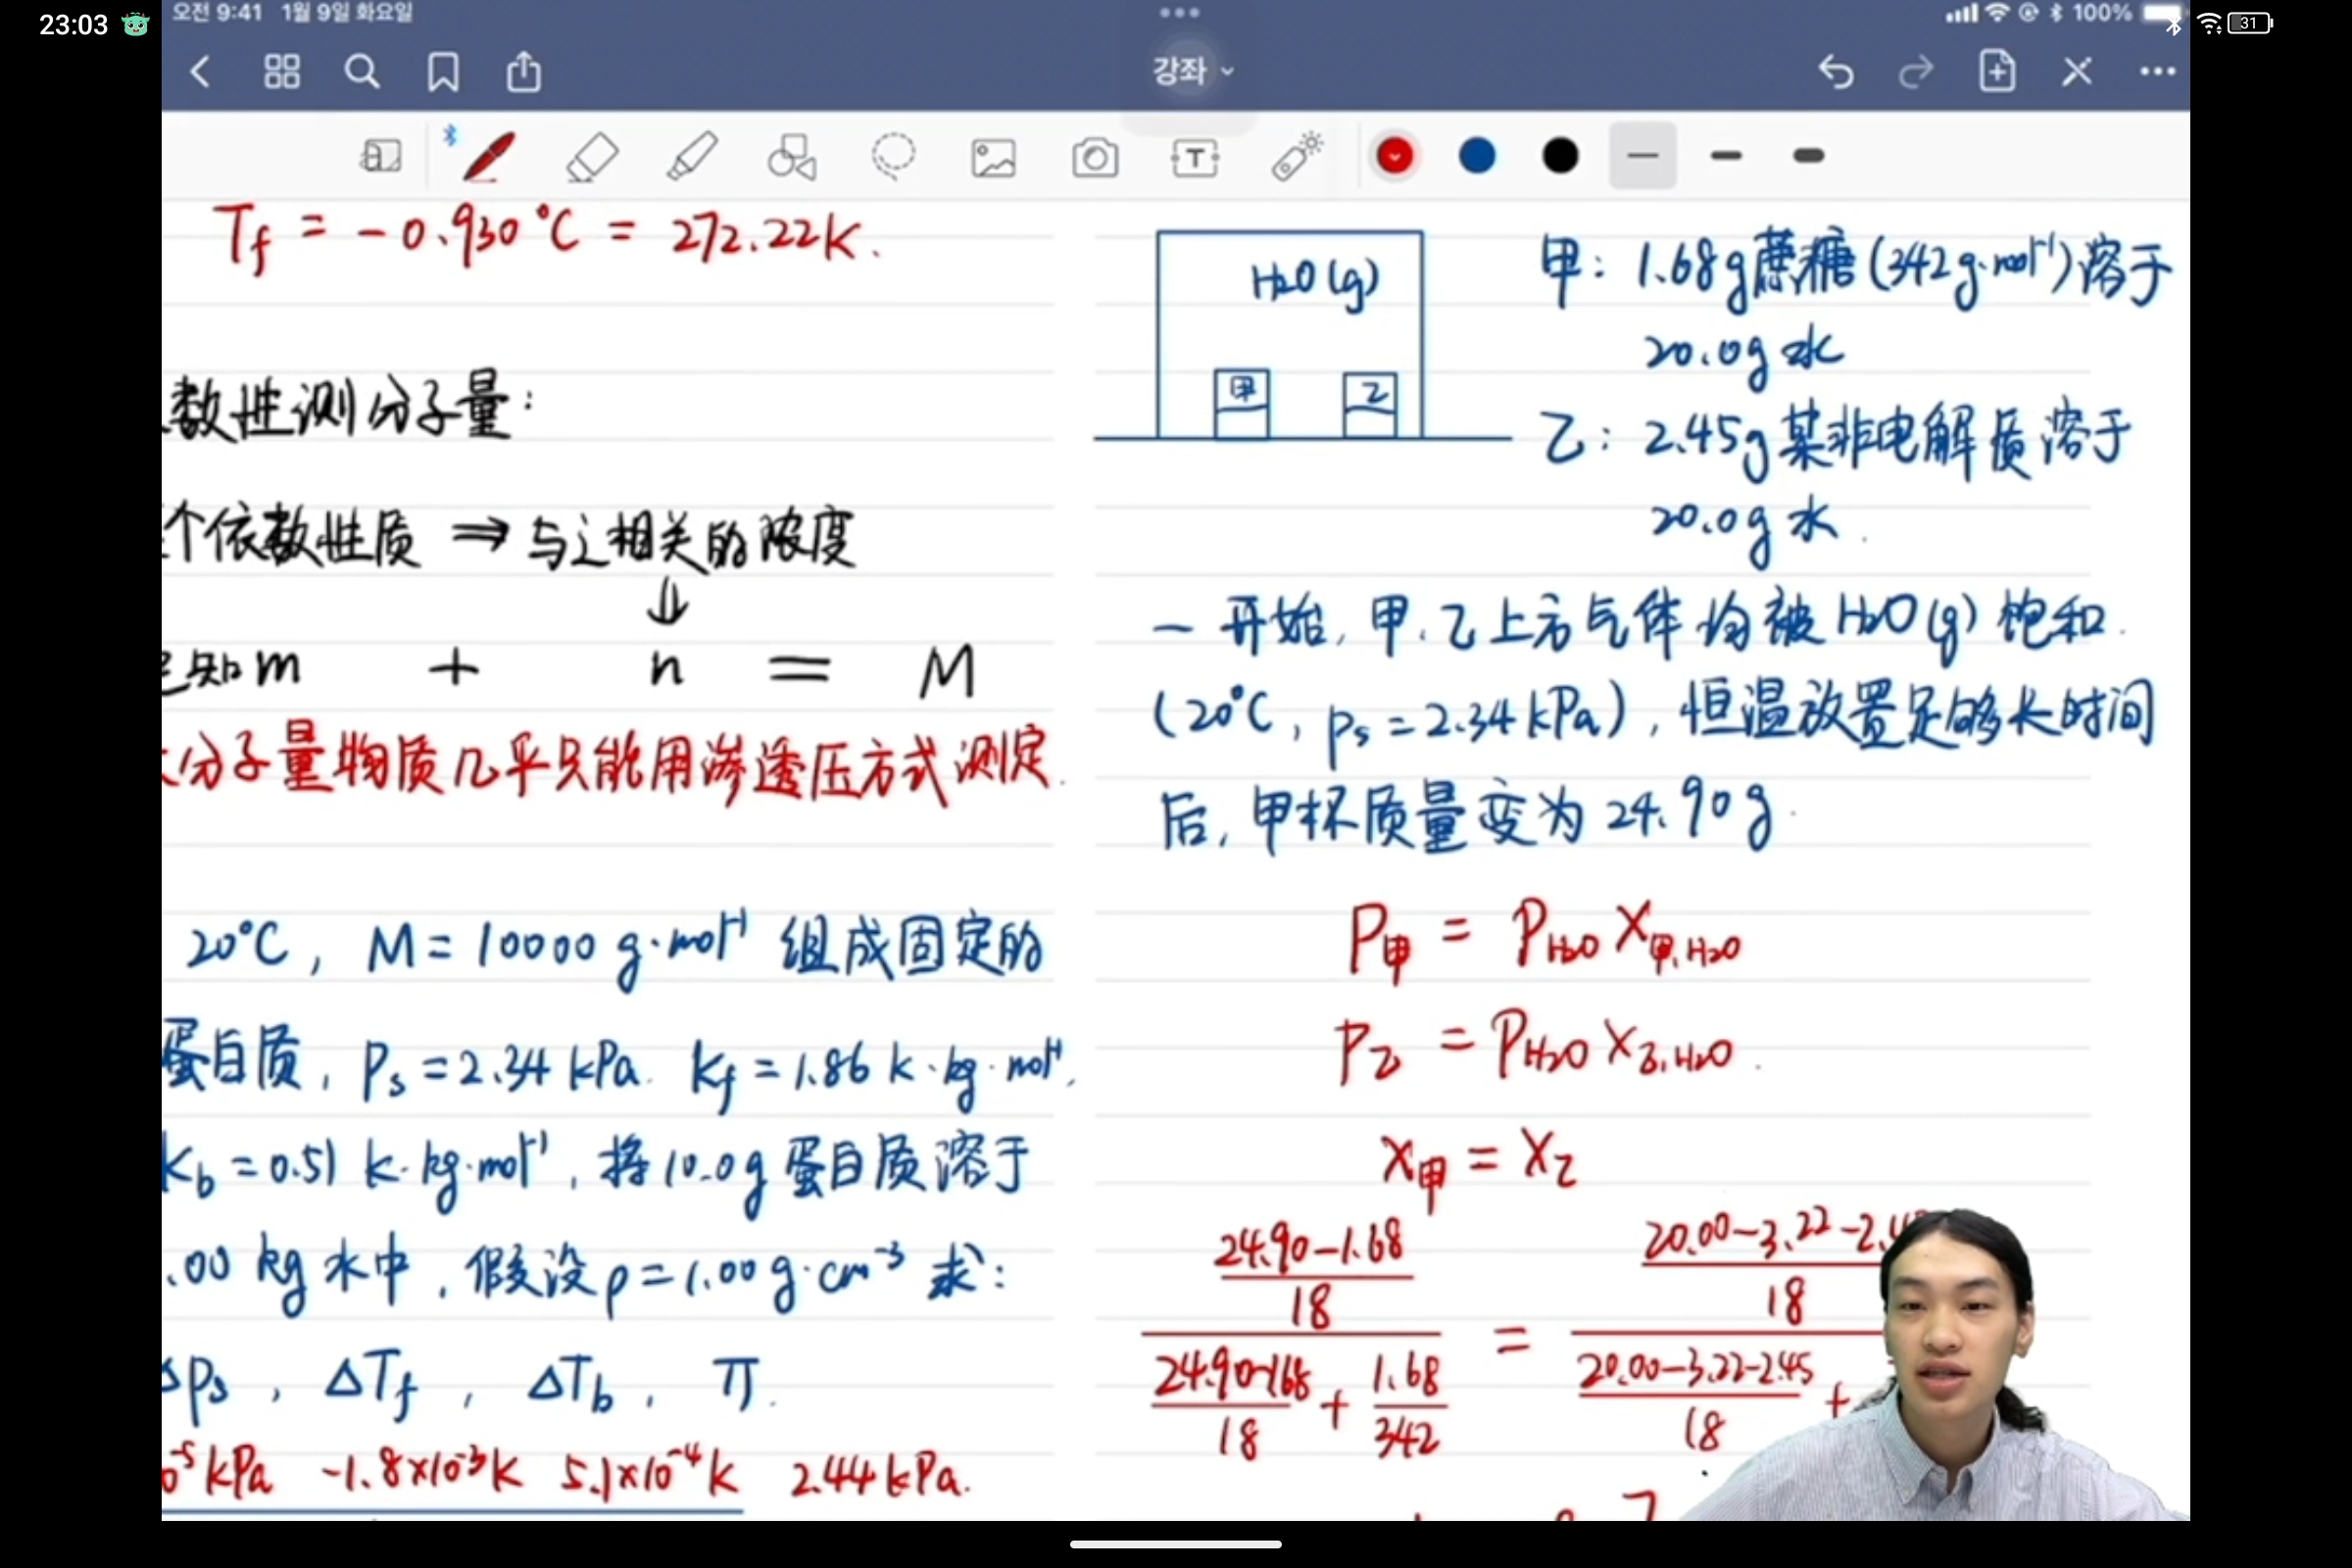 23:03
31
오전 9:41 1월 9일 화요일
100%
강좌
T
Tf = -0.930℃ = 272.22K.
数性测分子量:
个依数性质 ⇒ 与之相关的浓度
↓
知 m + n = M
分子量物质几乎只能用渗透压方式测定.
20℃, M = 10000 g·mol⁻¹ 组成固定的
蛋白质, Ps = 2.34 kPa. Kf = 1.86 K·kg·mol⁻¹,
Kb = 0.51 K·kg·mol⁻¹, 将10.0g蛋白质溶于
.00 kg水中, 假设ρ=1.00g·cm⁻³ 求:
ΔPs, ΔTf, ΔTb, π.
0⁻⁵ kPa -1.8×10⁻³K 5.1×10⁻⁴K 2.44kPa.
H₂O(g)
甲 乙
甲: 1.68g蔗糖(342g·mol⁻¹)溶于
20.0g水
乙: 2.45g某非电解质溶于
20.0g水.
一开始, 甲、乙上方气体均被H₂O(g)饱和.
(20℃, Ps=2.34kPa), 恒温放置足够长时间
后, 甲杯质量变为24.90g.
P甲 = PH₂O X甲,H₂O
P乙 = PH₂O X乙,H₂O.
X甲 = X乙
24.90-1.68 20.00-3.22-2.4
18 18
=
24.90-1.68 + 1.68 20.00-3.22-2.45 +
18 342 18